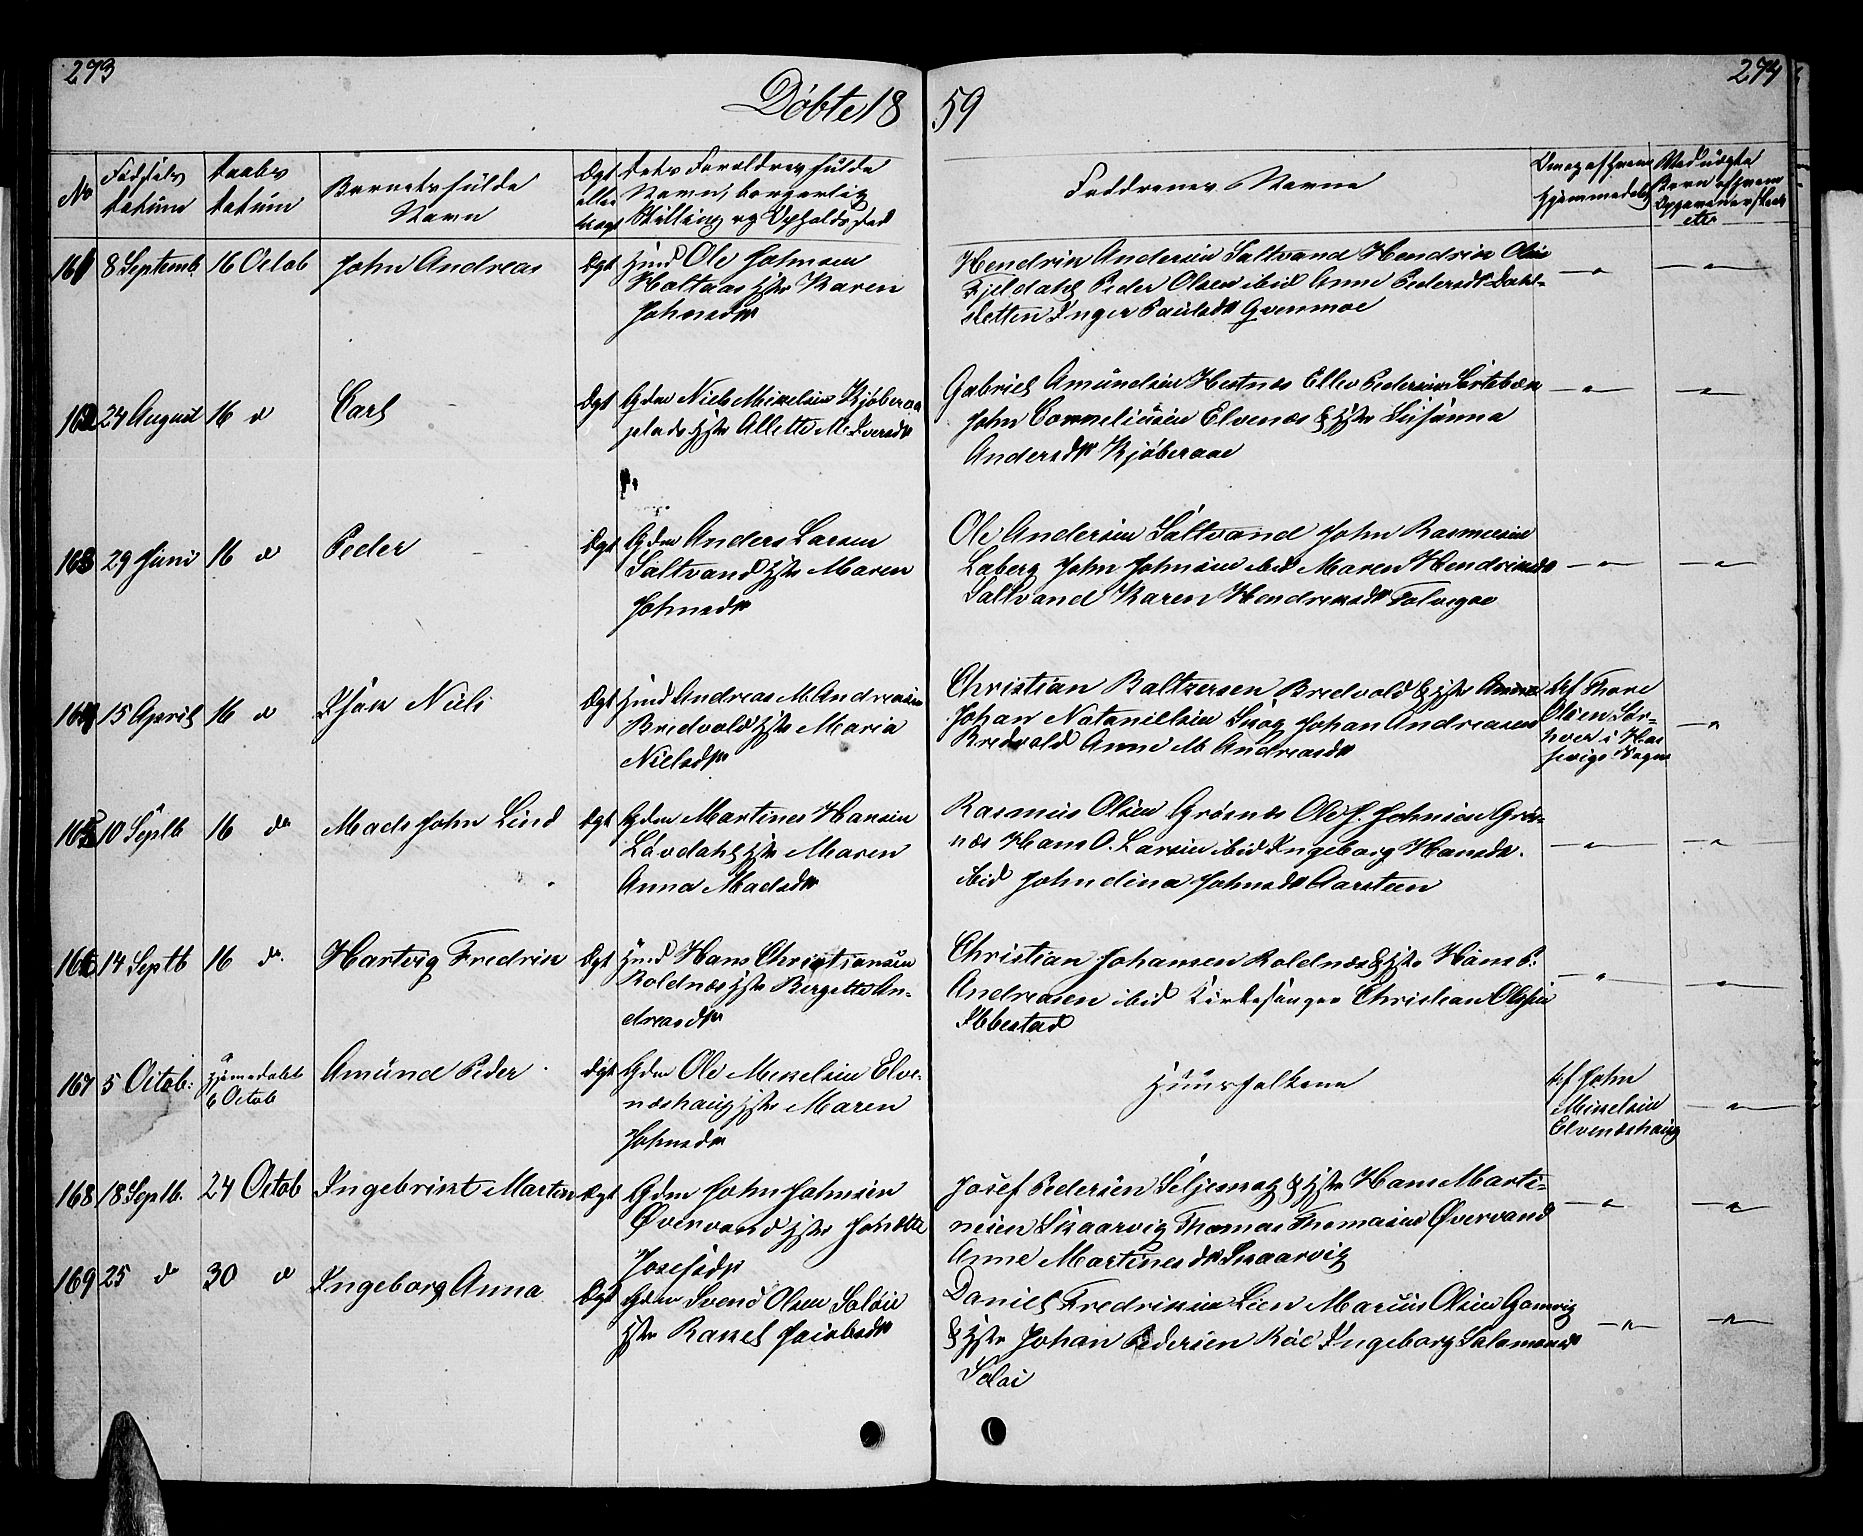 273
274
Döbte 18 59
No
Fødsels datum
Daabs datum
Barnets fulde Navn
Ægt eller uægt
Dets Forældres fulde Navn, borgerlig Stilling og Opholdssted
Faddrenes Navne
161 8 Septemb. 16 Octob John Andreas Ægt Huusd Ole Johnsen
Holtaas Hstr Karen
Johnsdtr
Hendrik Andersen Saltvand Hendrik Olsen
Fjeldahl Peder Olsen ibid Anne Pedersdtr Dahl-
sletten Inger Paulsdtr Qvenmoe
162 24 August 16 d Carl Ægt Gdm Niels Mikelsen Kjøberaa
plads Hstr Allette M. Iversdtr
Gabriel Amundsen Hestnes Ellev Pedersen
John Corneliusen Elvenæs & Hstr Susanna
Andersdtr Kjøberaae
163 29 Juni 16 d Peder Ægt Gdm Anders Larsen
Saltvand Hstr Maren
Johnsdtr
Ole Andersen Saltvand John Rasmusen
Laberg John Johnsen ibid Maren Hendriksdtr
Saltvand Karen Hendriksdtr
164 15 April 16 d Niels Ægt Huusd Andreas M. Andreasen
Bredvold Hstr Maria
Nielsdtr
Christian Baltzersen Bredvold & Hstr
Johan Natanielsen Skog Johan Andreasen
Bredvold Anne M. Andreasdtr
af Thore
Olsen Sør-
hver i Has
sivigs Sogn
165 10 Septb 16 do Mads John Lind Ægt Gdm Martines Hansen
Løvdahl Hstr Maren
Anna Madsdtr
Rasmus Olsen Grøsnes Ole J. Johnsen Grøs-
næs Hans O. Larsen ibid Ingeborg Hansdtr.
ibid Johndina Johnsdtr Aarsteen
166 14 Septb 16 do. Hartvig Fredrik Ægt Huusd Hans Christiansen
Roldnæs Hstr Bergette An-
dreasdtr
Christian Johansen Roldnæs & Hstr Hans P.
Andreasen ibid Kirkesanger Christian Olsen
Ibbestad
167 5 Octob: hjemmedøbt
6 Octob
Amund Peder Ægt Gdm Ole Mikkelsen Elve-
næshaug Hstr Maren
Johnsdtr
Huusfolkene
af John
Mikkelsen
Elvenæshaug
168 18 Septb. 24 Octob Ingebrikt Martin Ægt Gdm John Johnsen
Øvervand Hstr Johætte
Josefsdtr
Josef Pedersen Seljeskog & Hstr Hans Marti-
nesen Skaarvig Thomas Thomasen Øvervand
Anne Martinesdtr Skaarvig
169 25 do 30 d Ingeborg Anna Ægt Gdm Svend Olsen Soløie
Hstr Rakkel Jakobsdtr
Daniel Fredriksen Lien Marius Olsen Gamvig
& Hstr Johan Pedersen Röe Ingeborg Salamonsdtr
Soløi